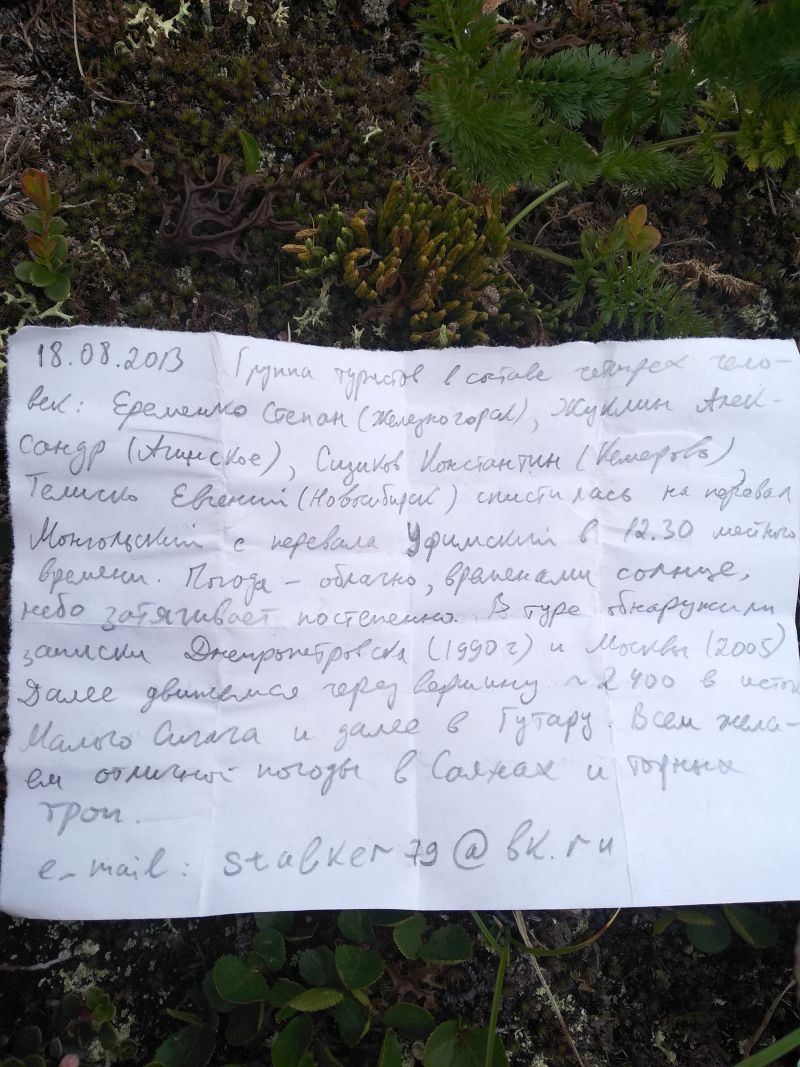 18.08.2013 Группа туристов в составе четырех чело-
век: Еременко Степан (Железногорск), Жуклин Алек-
сандр (Агинское), Сизиков Константин (Кемерово),
Телиско Евгений (Новосибирск) спустилась на перевал
Монгольский с перевала Уфимский в 12.30 местного
времени. Погода - облачно, временами солнце,
небо затягивает постепенно. В туре обнаружили
записки Днепропетровска (1990 г) и Москвы (2005)
Далее движемся через вершину ~ 2400 в исток
Малого Сигача и далее в Гутару. Всем жела-
ем отличной погоды в Саянах и торных
троп.
e_mail: stalker79@bk.ru